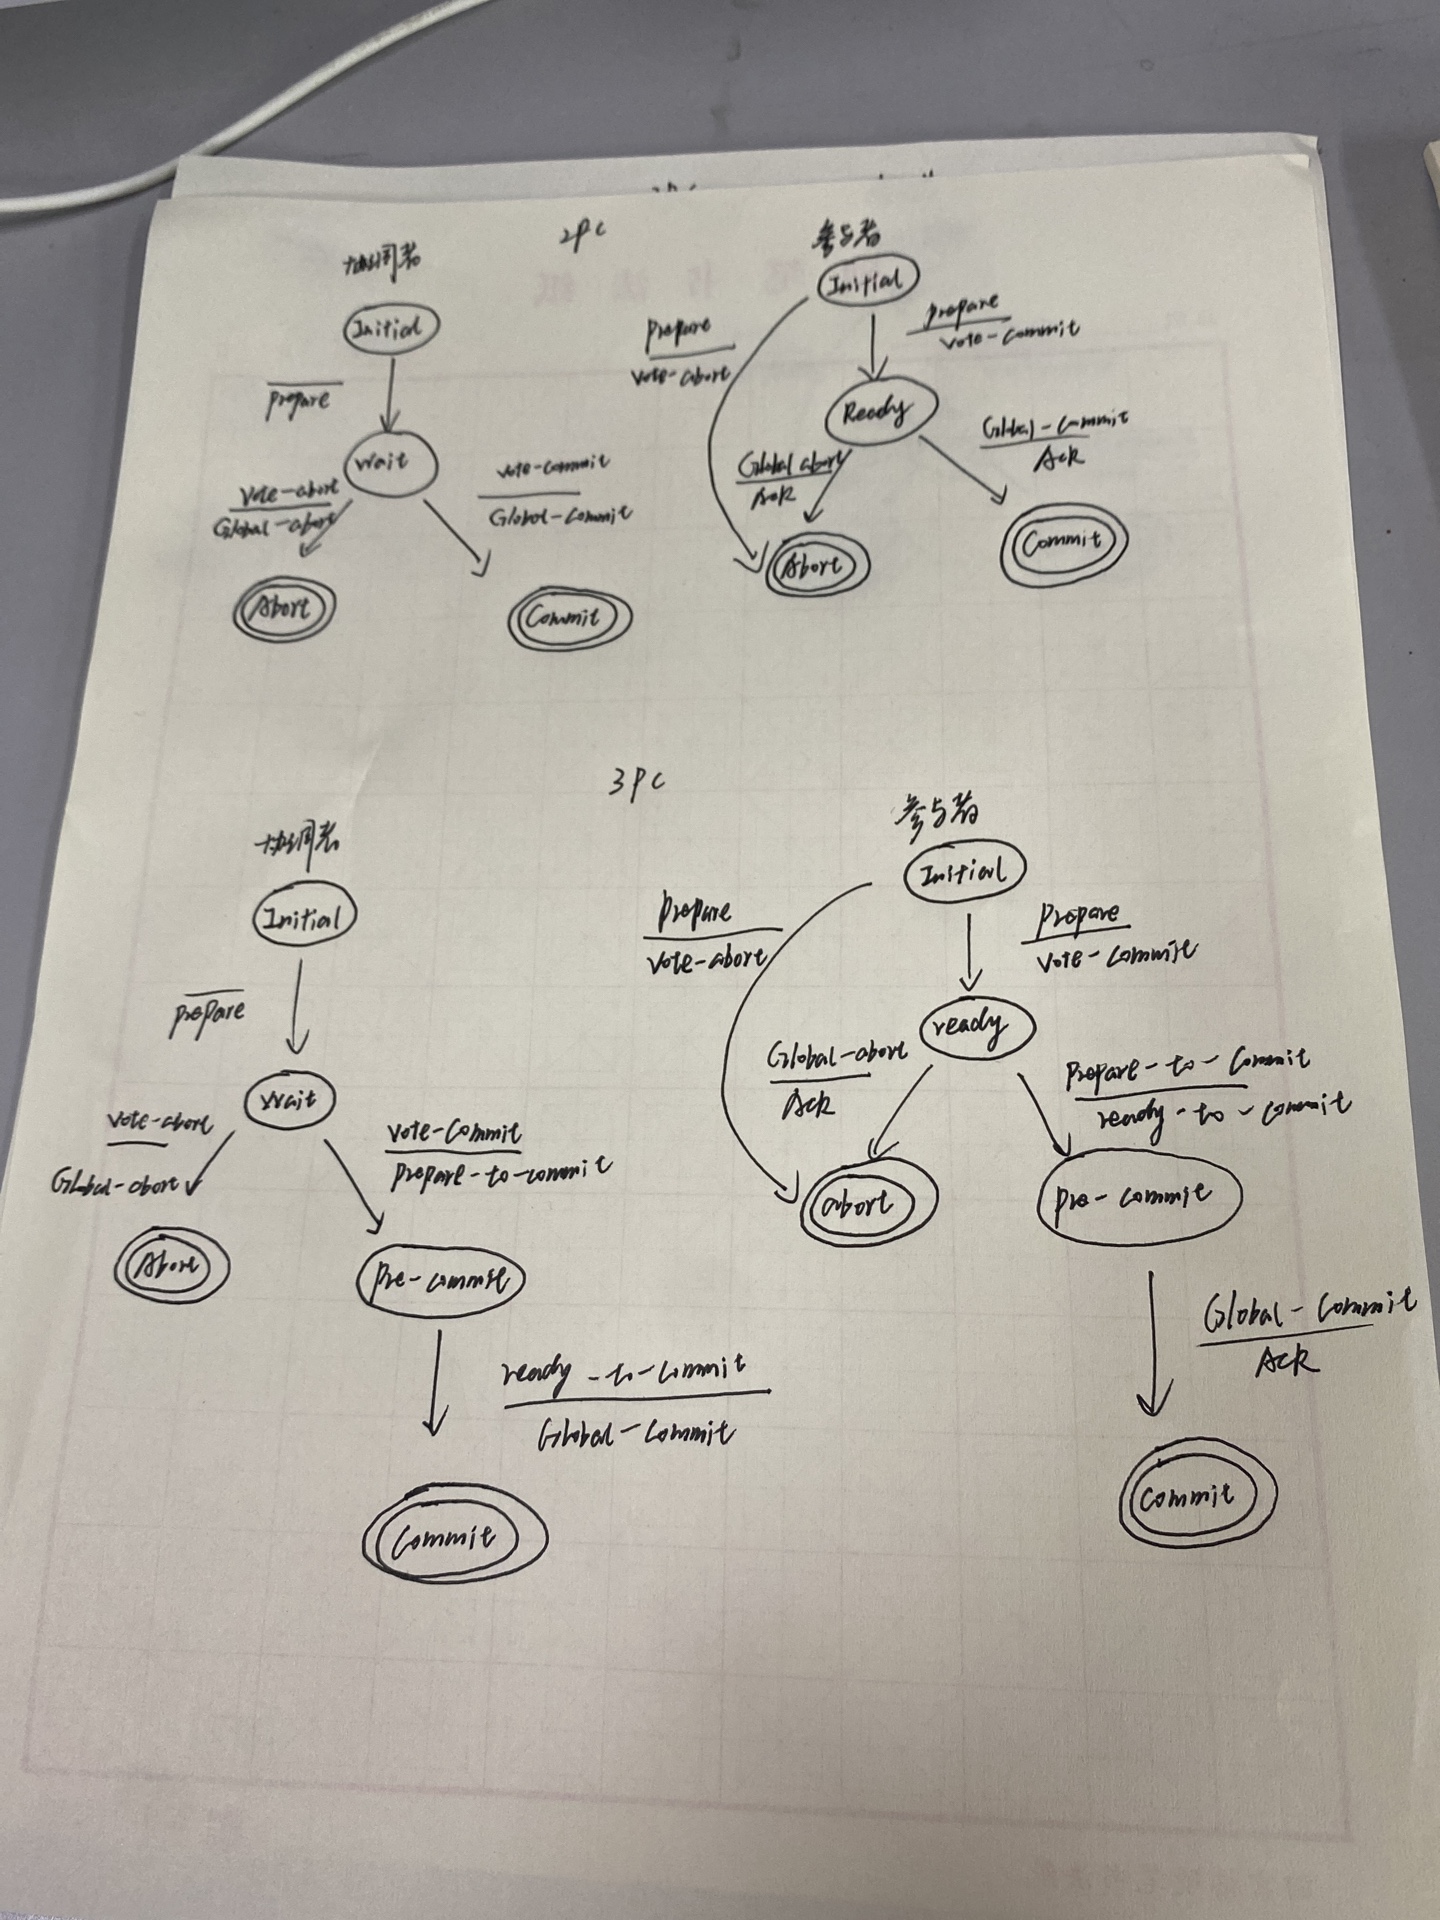 2PC
协调者
Initial
prepare
wait
vote-abort
Global-abort
vote-commit
Global-commit
Abort
Commit
参与者
Initial
prepare
vote-abort
prepare
vote-commit
Ready
Global abort
Ack
Global-commit
Ack
Abort
Commit
3PC
协调者
Initial
prepare
wait
vote-abort
Global-abort
vote-commit
prepare-to-commit
Abort
pre-commit
ready-to-commit
Global-commit
Commit
参与者
Initial
prepare
vote-abort
prepare
vote-commit
ready
Global-abort
Ack
prepare-to-commit
ready-to-commit
abort
pre-commit
Global-commit
Ack
commit